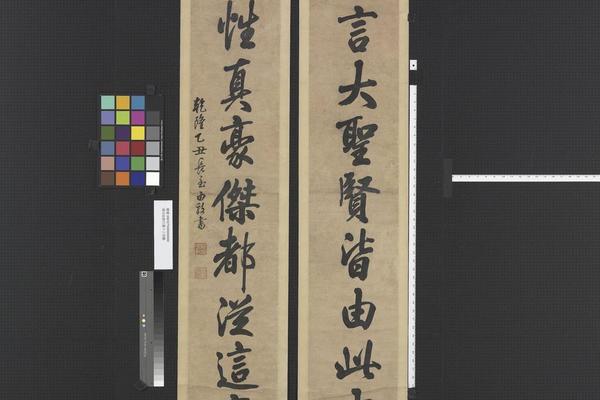 言大聖賢皆由此
性真豪傑都從這
乾隆乙丑長至由敦書